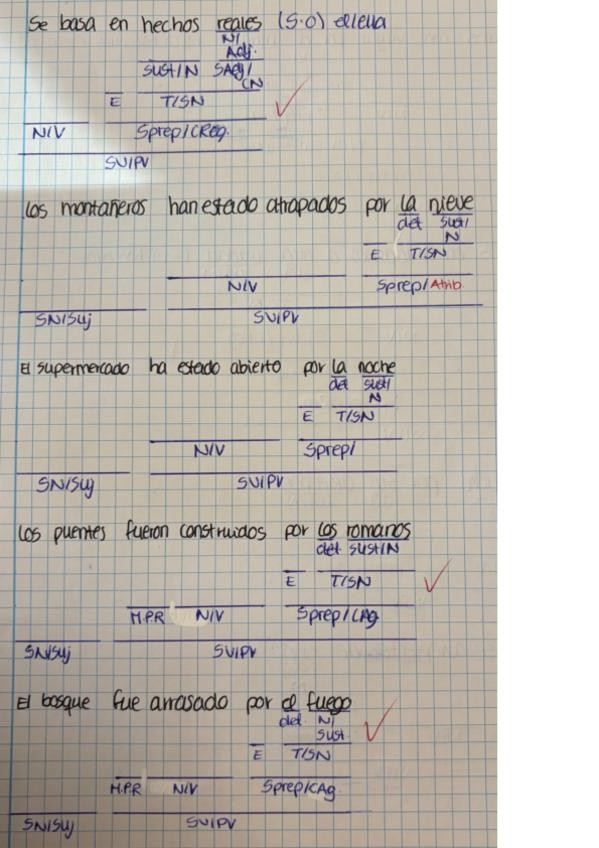 Se basa en hechos reales (S.O) ella
N/
Adj.
Sust/N SAdj/
CN
E T/SN
N/V Sprep/CReg.
SV/PV
Los montañeros han estado atrapados por la nieve
det Sust/
N
E T/SN
N/V Sprep/Atrib
SN/Suj SV/PV
El supermercado ha estado abierto por la noche
det Sust/
N
E T/SN
N/V Sprep/
SN/Suj SV/PV
Los puentes fueron construidos por los romanos
det. Sust/N
E T/SN
M.P.R N/V Sprep/CAg
SN/Suj SV/PV
El bosque fue arrasado por el fuego
det. N/
Sust.
E T/SN
M.P.R N/V Sprep/CAg.
SN/Suj SV/PV